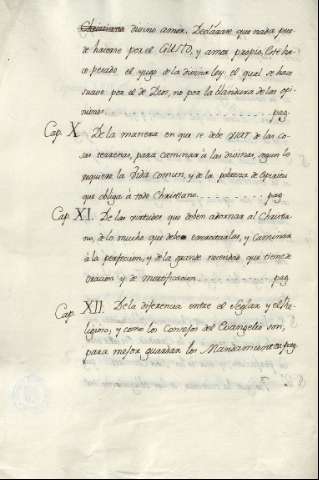 Christiano divino amor. Declárase que nadie pue-
de hacerse por el GUSTO, y amor propio. Este ha-
ce pesado el yugo de la divina ley: el qual se hace
suave por el de Dios, no por la blandura de las opi-
niones. pag.
Cap. X. De la manera en que se debe usar de las co-
sas terrenas, para caminar à las divinas, segun lo
requiere la Vida comun, y de la pobreza de Espiritu
que obliga à todo Christiano. pag.
Cap. XI. De las virtudes que deben adornar al Christia-
no, de lo mucho que debe exercitarlas, y caminar
à la perfeccion, y de la grande necesidad que tiene de
oracion y de mortificacion. pag.
Cap. XII. De la diferencia entre el Seglar y el Re-
ligioso, y como los Consejos del Evangelio son,
para mejor guardar los Mandamientos. pag.